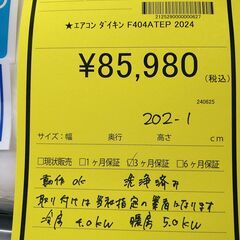 2125280000000627
★エアコン ダイキン F404ATEP 2024
¥85,980
(税込)
240625
202-1
★サイズ：幅 奥行 高さ cm
□現状販売 □1ヶ月保証 ☑3ヶ月保証 □6ヶ月保証
動作OK 洗浄済み
取り付けは当社指定の業者になります
冷房 4.0kw 暖房 5.0kw